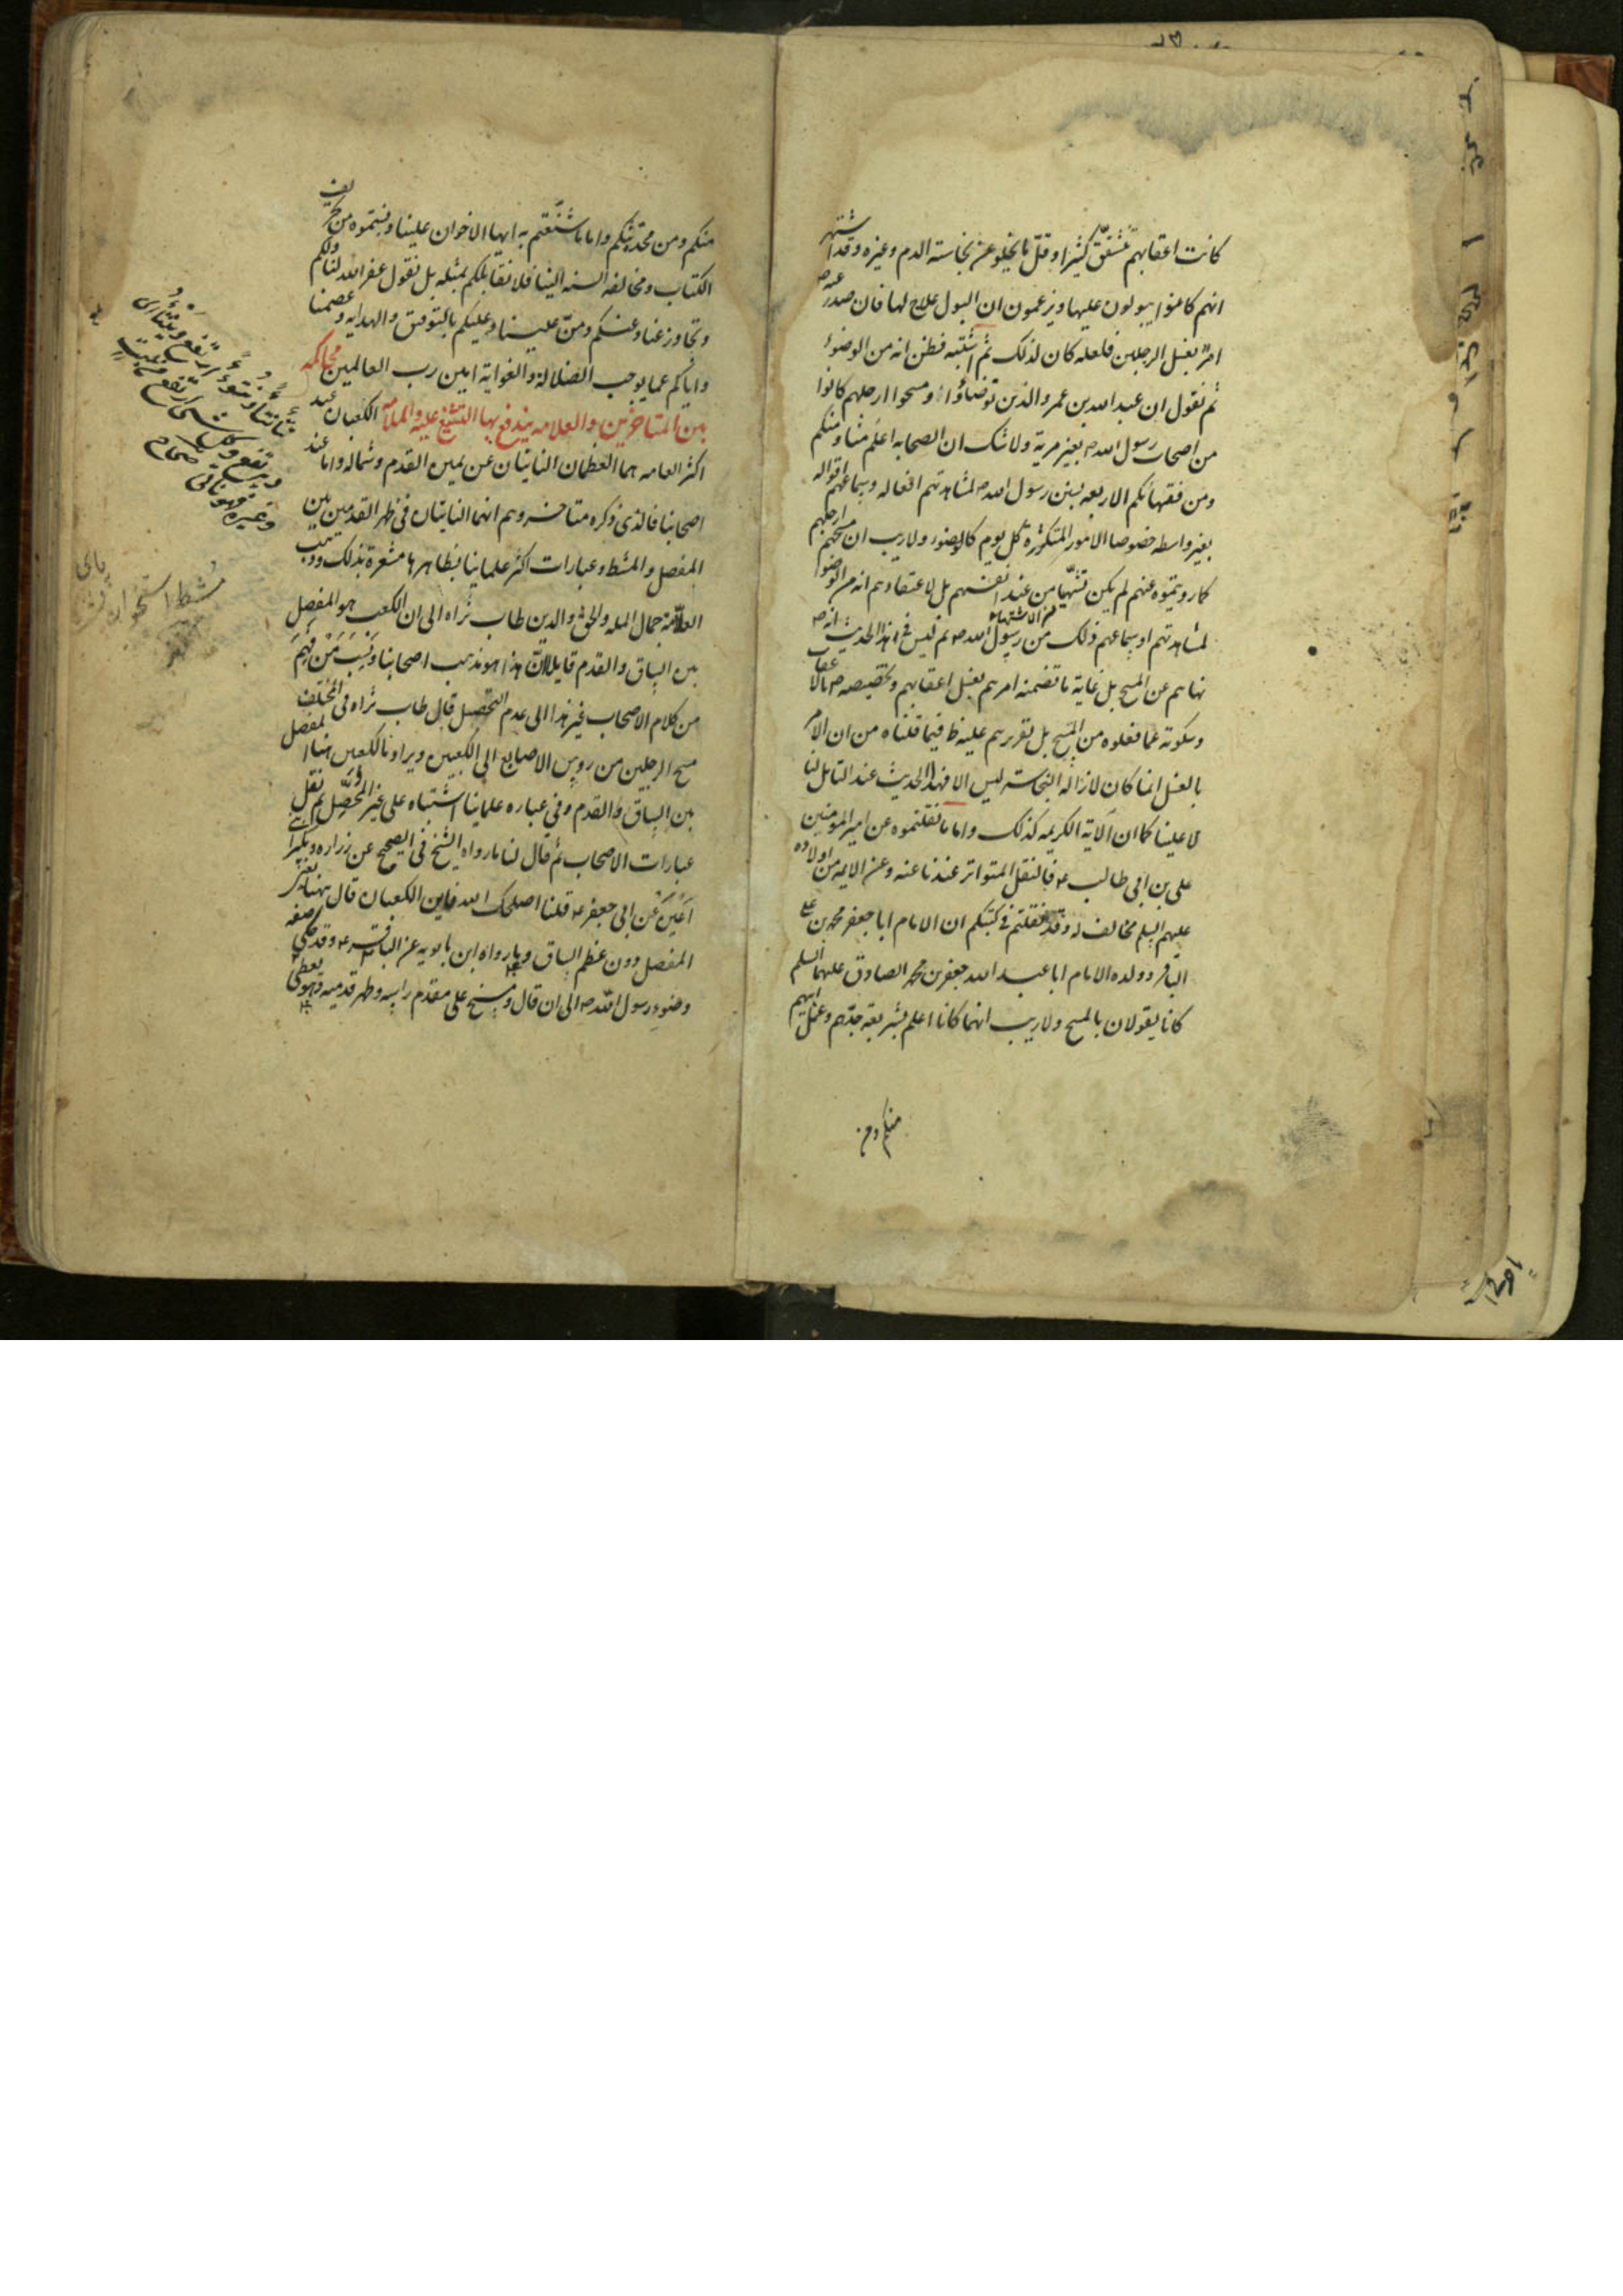 كانت اعقابهم تشقق كثيرا وقل ما يخلو عن نجاسة الدم وغيره وقد اشتهر
انهم كانوا يبولون عليها ويزعمون ان البول علاج لها فان صدر عنه ص
امر بغسل الرجلين فلعله كان لذلك ثم اشتبه فظن انه من الوضوء
ثم نقول ان عبد الله بن عمر والذين توضاؤا ومسحوا ارجلهم كانوا
من اصحاب رسول الله ص بغير مرية ولا شك ان الصحابه اعلم منا ومنكم
ومن فقهائكم الاربعه بسنن رسول الله ص لمشاهدتهم افعاله وسماعهم اقواله
بغير واسطه خصوصا الامور المتكررة كل يوم كالوضوء ولا ريب ان مسحهم ارجلهم
كما رويتموه عنهم لم يكن تشهيا من عند انفسهم بل لاعتقادهم انه من الوضوء
لمشاهدتهم او سماعهم ذلك من رسول الله ص ثم ليس في هذا الحديث انه ص
نهاهم عن المسح بل غاية ما تضمنه امرهم بغسل اعقابهم وتخصيصه ص بالاعقاب
وسكوته عما فعلوه من المسح بل تقريرهم عليه ظ فيما قلناه من ان الامر
بالغسل انما كان لازالة النجاسة ليس الا فهذا الحديث عند التامل لنا
لا علينا كما ان الاية الكريمه كذلك واما ما نقلتموه عن امير المومنين
على بن ابى طالب ع فالنقل المتواتر عندنا عنه وعن الايمه من اولاده
عليهم السلم مخالف له وقد نقلتم في كتبكم ان الامام ابا جعفر محمد بن على
الباقر وولده الامام ابا عبد الله جعفر بن محمد الصادق عليهما السلم
كانا يقولان بالمسح ولا ريب انهما كانا اعلم بشريعة جدهم وعمل ابيهم
منكم ومن
منكم ومن محدثيكم واما ما شنعتم به ايها الاخوان علينا ونسبتموه من تحريف
الكتاب ومخالفه السنه الينا فلا نقابلكم بمثله بل نقول غفر الله لنا ولكم
وتجاوز عنا وعنكم ومن علينا وعليكم بالتوفيق والهدايه وعصمنا
واياكم عما يوجب الضلالة والغواية امين رب العالمين محاكمه
بين المتاخرين والعلامه يندفع بها التشنيع عليه والملامه الكعبان عند
اكثر العامه هما العظمان الناتيتان عن يمين القدم وشماله واما عند
اصحابنا فالذى ذكره متاخروهم انهما الناتيتان في ظهر القدمين بين
المفصل والمشط وعبارات اكثر علمائنا بظاهرها مشعرة بذلك وذهب
العلامة جمال المله والحق والدين طاب ثراه الى ان الكعب هو المفصل
بين الساق والقدم قايلا ان هذا هو مذهب اصحابنا ونسب من فهم
من كلام الاصحاب غير هذا الى عدم التحصيل قال طاب ثراه في المختلف
مسح الرجلين من روس الاصابع الى الكعبين ويراد بالكعبين هنا المفصل
بين الساق والقدم وفي عباره علمائنا اشتباه على غير المحصل ثم نقل
عبارات الاصحاب ثم قال لنا ما رواه الشيخ في الصحيح عن زراره وبكير ابنى
اعين عن ابى جعفر ع قلنا اصلحك الله فاين الكعبان قال ههنا يعنى
المفصل دون عظم الساق وما رواه ابن بابويه عن الباقر ع وقد حكى صفه
وضوء رسول الله ص الى ان قال ومسح على مقدم راسه وظهر قدميه وهو يعطى